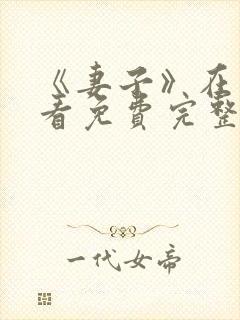 《妻子》在
看免费完整
一代女帝